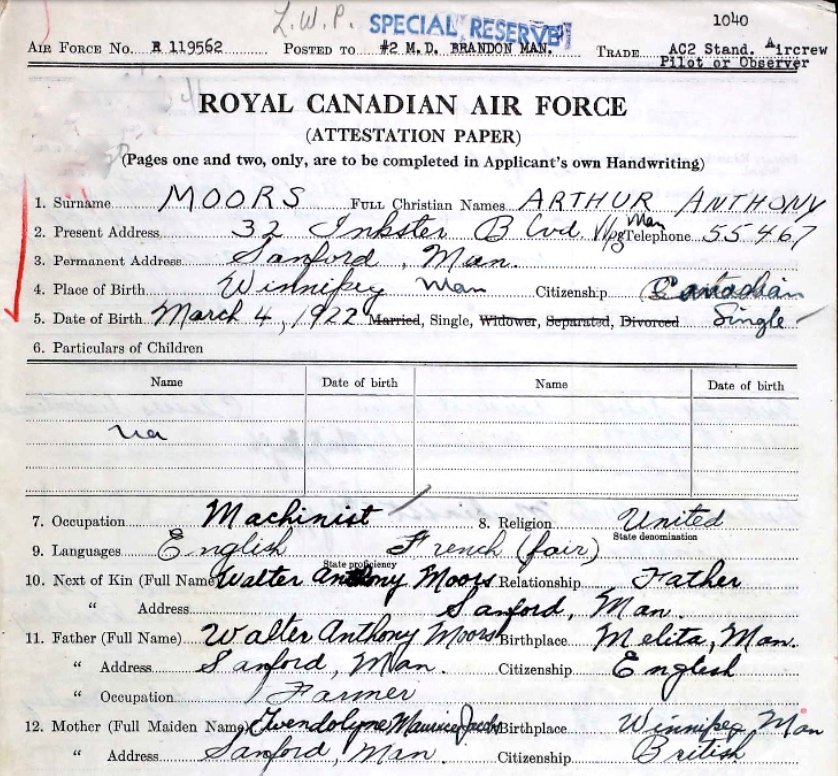 L.W.P. SPECIAL RESERVE 1040
AIR FORCE No. R 119562 POSTED TO #2 M.D. BRANDON MAN. TRADE AC2 Stand. Aircrew
Pilot or Observer
ROYAL CANADIAN AIR FORCE
(ATTESTATION PAPER)
(Pages one and two, only, are to be completed in Applicant's own Handwriting)
1. Surname MOORS FULL Christian Names ARTHUR ANTHONY
2. Present Address 32 Inkster Blvd. Wpg Man Telephone 55467
3. Permanent Address Sanford, Man.
4. Place of Birth Winnipeg Man Citizenship Canadian
5. Date of Birth March 4, 1922 Married, Single, Widower, Separated, Divorced Single
6. Particulars of Children
Name Date of birth Name Date of birth
7. Occupation Machinist 8. Religion United
State denomination
9. Languages English French (fair)
State proficiency
10. Next of Kin (Full Name) Walter Anthony Moors Relationship Father
" Address Sanford, Man.
11. Father (Full Name) Walter Anthony Moors Birthplace Melita, Man.
" Address Sanford, Man. Citizenship English
" Occupation Farmer
12. Mother (Full Maiden Name) Gwendolyne Maurice Birthplace Winnipeg Man
" Address Sanford, Man. Citizenship British